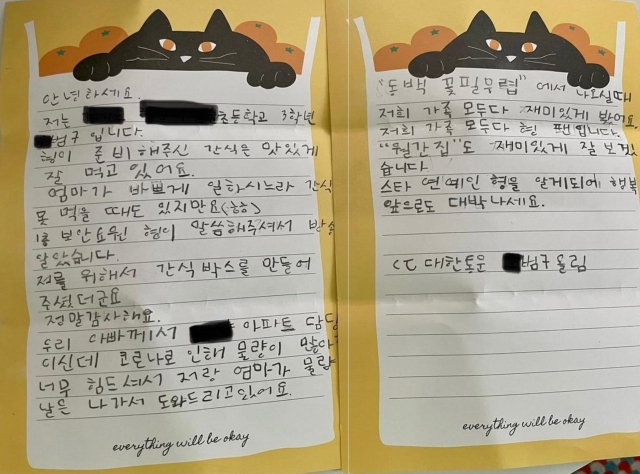 안녕하세요.
저는 초등학교 3학년
범구 입니다.
형이 준비해주신 간식은 맛있게
잘 먹고 있어요.
엄마가 바쁘게 일하시느라 간식
못 먹을 때도 있지만요(ㅎㅎ)
1층 보안요원 형이 말씀해주셔서 방송
알았습니다.
저를 위해서 간식박스를 만들어
주셨더군요
정말감사해요.
우리 아빠께서 아파트 담당
이신데 코로나로 인해 물량이 많아
너무 힘드셔서 저랑 엄마가 물량
날은 나가서 도와드리고있어요.
everything will be okay
"동백 꽃필무렵" 에서 나오실때
저희 가족 모두다 재미있게 봤어요
저희 가족 모두다 형 팬입니다.
"월간집"도 재미있게 잘 보겠
습니다
스타 연예인 형을 알게되어 행복
앞으로도 대박나세요.
CJ 대한통운 범구올림
everything will be okay